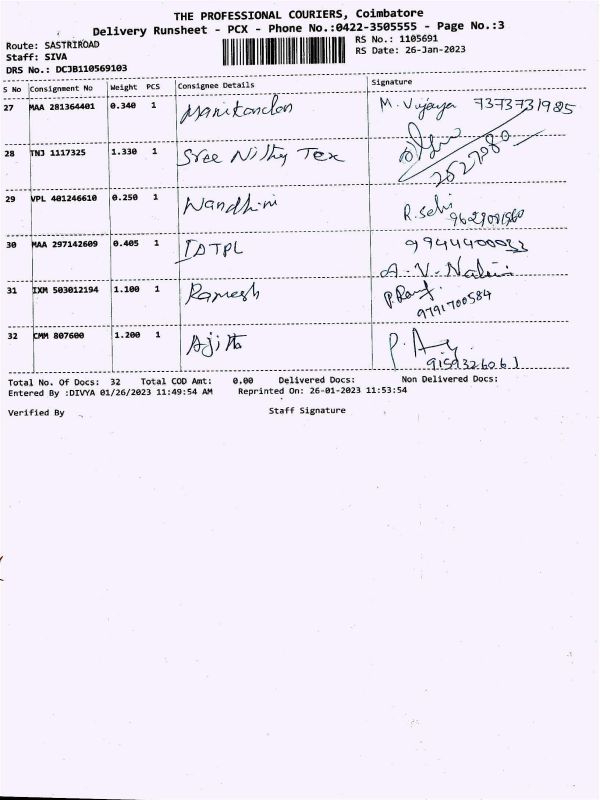 THE PROFESSIONAL COURIERS, Coimbatore
Delivery Runsheet - PCX - Phone No.:0422-3505555 - Page No.:3
Route: SASTRIROAD
RS No.: 1105691
Staff: SIVA
RS Date: 26-Jan-2023
DRS No.: DCJB110569103
S No Consignment No Weight PCS Consignee Details Signature
27 MAA 281364401 0.340 1 Manikandan M. Vijaya 7373731985
28 TNJ 1117325 1.330 1 Sree Nithy Tex 2527080
29 VPL 401246610 0.250 1 Nandhini R. Selvi
30 MAA 297142609 0.405 1 IDTPL 9944400033
A. V. Nalini
31 IXM 503012194 1.100 1 Ramesh
9791700584
32 CMM 807600 1.200 1 Ajith P.
9159326061
Total No. Of Docs: 32 Total COD Amt: 0.00 Delivered Docs: Non Delivered Docs:
Entered By :DIVYA 01/26/2023 11:49:54 AM Reprinted On: 26-01-2023 11:53:54
Verified By Staff Signature